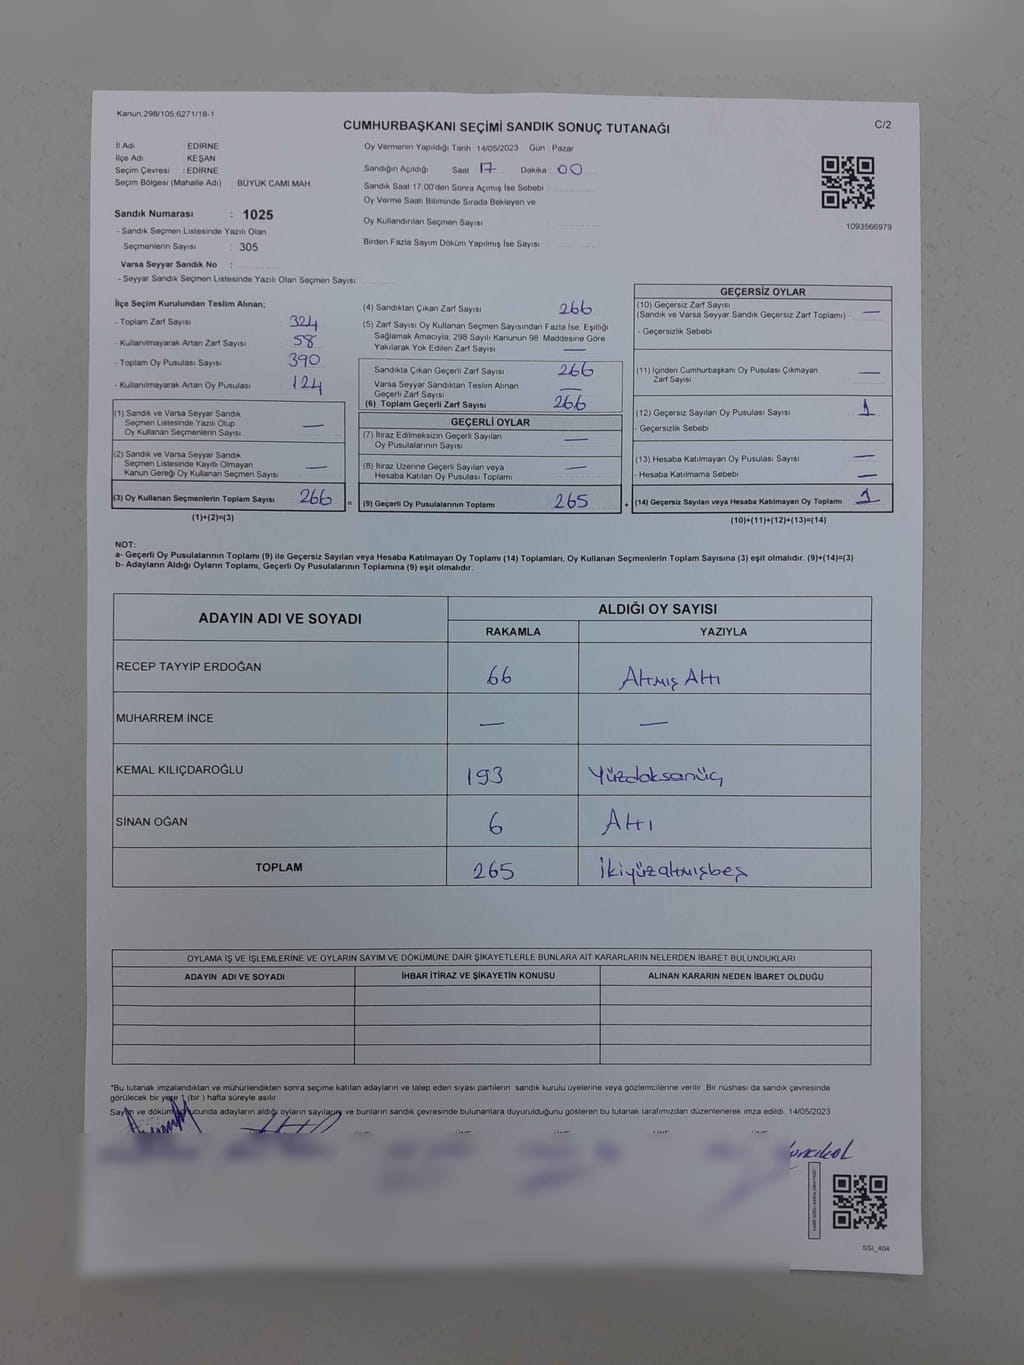 Kanun:298/105.6271/18-1
C/2
CUMHURBAŞKANI SEÇİMİ SANDIK SONUÇ TUTANAĞI
İl Adı : EDİRNE
İlçe Adı : KEŞAN
Seçim Çevresi : EDİRNE
Seçim Bölgesi (Mahalle Adı) : BÜYÜK CAMİ MAH.
Sandık Numarası : 1025
- Sandık Seçmen Listesinde Yazılı Olan
Seçmenlerin Sayısı : 305
Varsa Seyyar Sandık No :
- Seyyar Sandık Seçmen Listesinde Yazılı Olan Seçmen Sayısı:
Oy Vermenin Yapıldığı Tarih : 14/05/2023 Gün : Pazar
Sandığın Açıldığı Saat : 17 Dakika : 00
Sandık Saat 17.00'den Sonra Açımış İse Sebebi :
Oy Verme Saati Bitiminde Sırada Bekleyen ve
Oy Kullandırılan Seçmen Sayısı :
Birden Fazla Sayım Döküm Yapılmış İse Sayısı :
1093566979
İlçe Seçim Kurulundan Teslim Alınan;
- Toplam Zarf Sayısı : 324
- Kullanılmayarak Artan Zarf Sayısı : 58
- Toplam Oy Pusulası Sayısı : 390
- Kullanılmayarak Artan Oy Pusulası : 124
(1) Sandık ve Varsa Seyyar Sandık
Seçmen Listesinde Yazılı Olup
Oy Kullanan Seçmenlerin Sayısı : —
(2) Sandık ve Varsa Seyyar Sandık
Seçmen Listesinde Kayıtlı Olmayan
Kanun Gereği Oy Kullanan Seçmen Sayısı : —
(3) Oy Kullanan Seçmenlerin Toplam Sayısı 266 =
(1)+(2)=(3)
(4) Sandıktan Çıkan Zarf Sayısı : 266
(5) Zarf Sayısı Oy Kullanan Seçmen Sayısından Fazla İse, Eşitliği
Sağlamak Amacıyla, 298 Sayılı Kanunun 98. Maddesine Göre
Yakılarak Yok Edilen Zarf Sayısı : —
Sandıkta Çıkan Geçerli Zarf Sayısı : 266
Varsa Seyyar Sandıktan Teslim Alınan
Geçerli Zarf Sayısı : —
(6) Toplam Geçerli Zarf Sayısı : 266
GEÇERLİ OYLAR
(7) İtiraz Edilmeksizin Geçerli Sayılan
Oy Pusulalarının Sayısı : —
(8) İtiraz Üzerine Geçerli Sayılan veya
Hesaba Katılan Oy Pusulası Toplamı : —
(9) Geçerli Oy Pusulalarının Toplamı : 265 +
GEÇERSİZ OYLAR
(10) Geçersiz Zarf Sayısı
(Sandık ve Varsa Seyyar Sandık Geçersiz Zarf Toplamı) : —
- Geçersizlik Sebebi :
(11) İçinden Cumhurbaşkanı Oy Pusulası Çıkmayan
Zarf Sayısı : —
(12) Geçersiz Sayılan Oy Pusulası Sayısı : 1
- Geçersizlik Sebebi :
(13) Hesaba Katılmayan Oy Pusulası Sayısı : —
- Hesaba Katılmama Sebebi : —
(14) Geçersiz Sayılan veya Hesaba Katılmayan Oy Toplamı : 1
(10)+(11)+(12)+(13)=(14)
NOT:
a- Geçerli Oy Pusulalarının Toplamı (9) ile Geçersiz Sayılan veya Hesaba Katılmayan Oy Toplamı (14) Toplamları, Oy Kullanan Seçmenlerin Toplam Sayısına (3) eşit olmalıdır. (9)+(14)=(3)
b- Adayların Aldığı Oyların Toplamı, Geçerli Oy Pusulalarının Toplamına (9) eşit olmalıdır.
ADAYIN ADI VE SOYADI ALDIĞI OY SAYISI
RAKAMLA YAZIYLA
RECEP TAYYİP ERDOĞAN 66 Altmış Altı
MUHARREM İNCE — —
KEMAL KILIÇDAROĞLU 193 Yüzdoksanüç
SİNAN OĞAN 6 Altı
TOPLAM 265 İkiyüzaltmışbeş
OYLAMA İŞ VE İŞLEMLERİNE VE OYLARIN SAYIM VE DÖKÜMÜNE DAİR ŞİKAYETLERLE BUNLARA AİT KARARLARIN NELERDEN İBARET BULUNDUKLARI
ADAYIN ADI VE SOYADI İHBAR İTİRAZ VE ŞİKAYETİN KONUSU ALINAN KARARIN NEDEN İBARET OLDUĞU
*Bu tutanak imzalandıktan ve mühürlendikten sonra seçime katılan adayların ve talep eden siyasi partilerin sandık kurulu üyelerine veya gözlemcilerine verilir. Bir nüshası da sandık çevresinde
görülecek bir yere 1 (bir) hafta süreyle asılır.
Sayım ve döküm sonucunda adayların aldığı oyların sayılarını ve bunların sandık çevresinde bulunanlara duyurulduğunu gösteren bu tutanak tarafımızdan düzenlenerek imza edildi. 14/05/2023
SSI_404